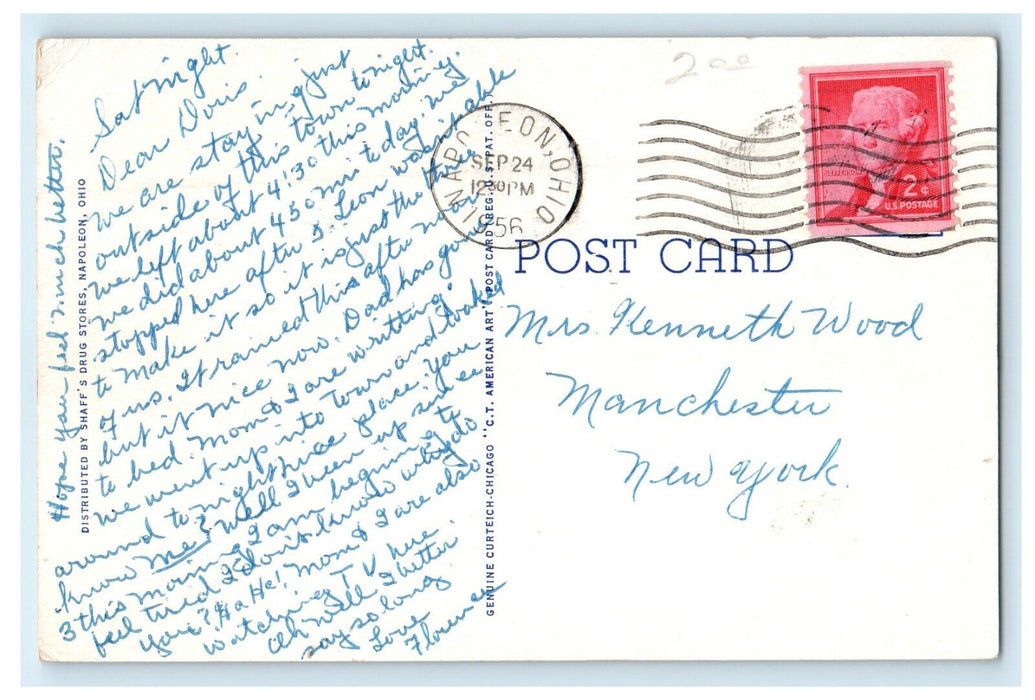 Sat night.
Dear Doris
We are staying just
outside of this town tonight.
We left about 4:30 this morning
we did about 450 mi today. We
stopped here after 5. Leon wasn't able
to make it so it is just the three
of us. It rained this afternoon
but it nice now. Dad has gone
to bed. Mom & I are writting.
We went up into Town and looked
around tonight nice place. You
know me? Well I been up since
3 this morning I am beginning to
feel tired I don't know why do
you? Ha Ha! Mom & I are also
watching TV here
Oh well I better
say so long.
Love
Florence
Hope you feel much better.
DISTRIBUTED BY SHAFF'S DRUG STORES, NAPOLEON, OHIO
GENUINE CURTEICH-CHICAGO "C.T. AMERICAN ART" POST CARD (REG. U.S. PAT. OFF.)
2.00
NAPOLEON, OHIO
SEP 24
12 30 PM
1956
JEFFERSON
2¢
U.S. POSTAGE
POST CARD
Mrs Kenneth Wood
Manchester
New York.